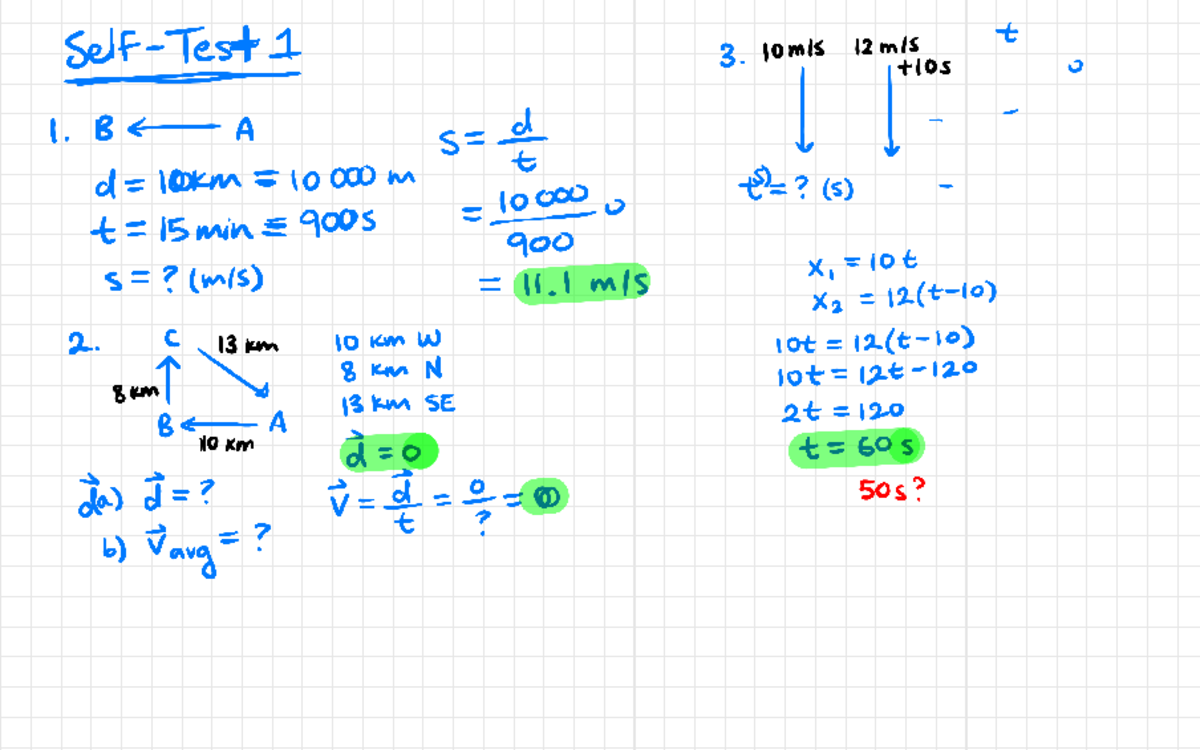 Self-Test 1
1. B ← A
d = 10km = 10 000 m
t = 15 min = 900s
s = ? (m/s)
s = d/t
= 10 000/900
= 11.1 m/s
2. C
13 km
8 km
B ← A
10 km
10 km W
8 km N
13 km SE
d⃗ = 0
d⃗a) d⃗ = ?
b) v⃗avg = ?
v⃗ = d⃗/t = 0/? = 0
3. 10 m/s 12 m/s
+10s
t = ? (s)
x₁ = 10t
x₂ = 12(t-10)
10t = 12(t-10)
10t = 12t-120
2t = 120
t = 60 s
50s?